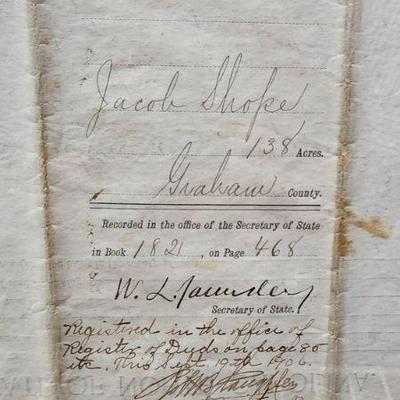 Jacob Shope
138 Acres.
Graham County.
Recorded in the office of the Secretary of State
in Book 1821, on Page 468
W. L. Saunders
Secretary of State.
Registered in the office of
Register of Deeds on page 80
etc. This Sept. 19th 1906.